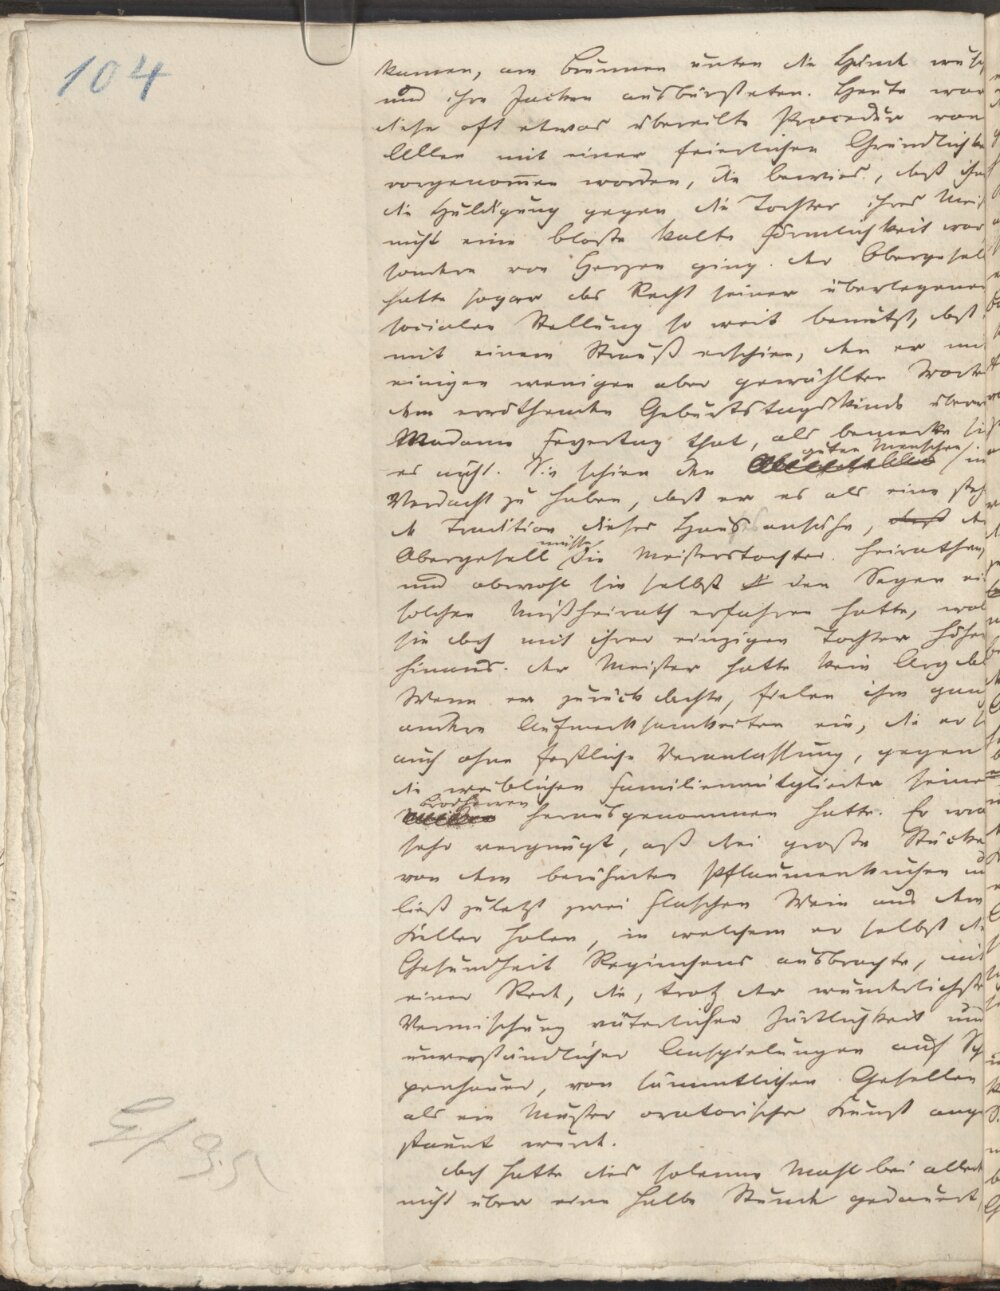 104
kamen, am Brunnen unten die Hände wusch
und ihre Jacken ausbürsteten. Heute war
diese oft etwas übereilte Procedur von
Allen mit einer feierlichen Gründlichke
vorgenommen worden, die bewies, daß ihn
die Huldigung gegen die Tochter ihres Mei
nicht eine bloße kalte Förmlichkeit war
sondern von Herzen ging. Der Obergesell
hatte sogar das Recht seiner überlegenen
socialen Stellung so weit benutzt, daß
mit einem Strauß erschien, den er mi
einigen wenigen aber gewählten Worte
dem erröthenden Geburtstagskinde überr
Madame Feyertag that, als bemerke sie
guten Menschen
es nicht. Sie schien den in
Verdacht zu haben, daß er es als eine steh
de Tradition dieses Hauses ansähe, daß der
müsse
Obergesell die Meisterstochter heirathen
und obwohl sie selbst den Segen ei
solchen Mißheirath erfahren hatte, wol
sie doch mit ihrer einzigen Tochter höher
hinaus. Der Meister hatte kein Arg da
Wenn er zurückdachte, fielen ihm gan
andere Aufmerksamkeiten ein, die er s
auch ohne festliche Veranlassung, gegen
die weiblichen Familienmitglieder seiner
Brodherren
herausgenommen hatte. Er war
sehr vergnügt, aß drei große Stücke
von dem berühmten Pflaumenkuchen u
ließ zuletzt zwei Flaschen Wein aus dem
Keller holen, in welchem er selbst die
Gesundheit Reginchens ausbrachte, mit
einer Rede, die, trotz der wunderlichste
Vermischung väterlicher Zärtlichkeit und
unverständlicher Anspielungen auf Scho
penhauer, von sämmtlichen Gesellen
als ein Muster oratorischer Kunst ange
staunt wurde.
Doch hatte dies solenne Mahl bei alled
nicht über eine halbe Stunde gedauert,